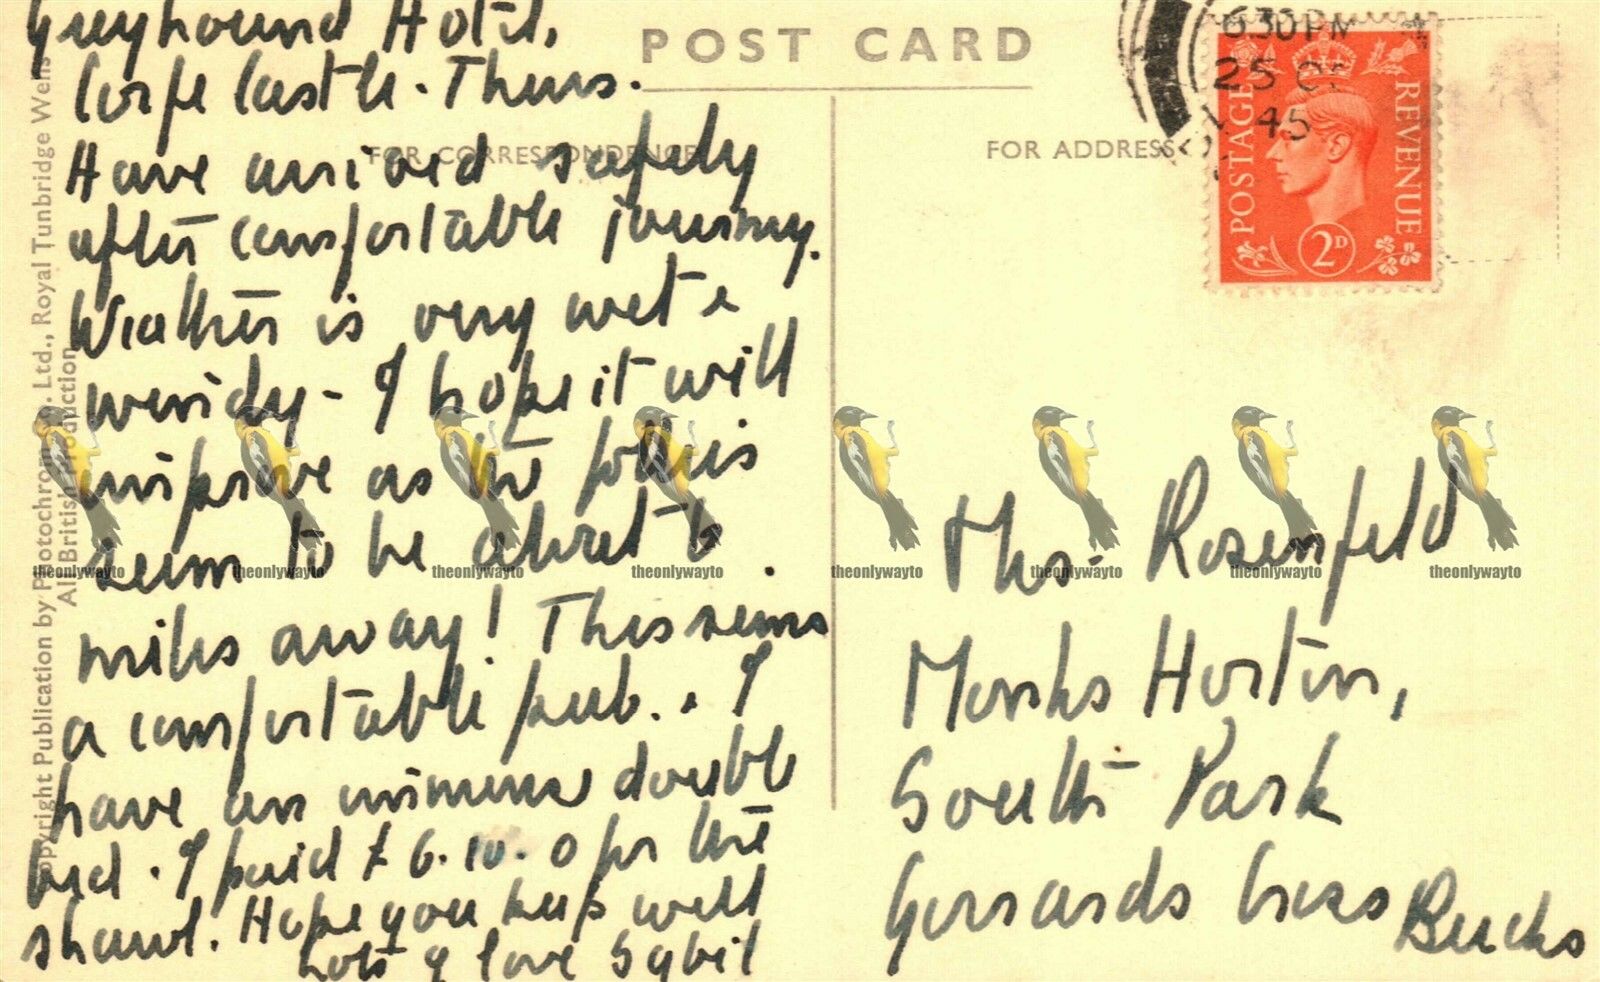 Greyhound Hotel,
Corfe Castle. Thurs.
Have arrived safely
after comfortable journey.
Weather is very wet &
windy - I hope it will
improve as the potteries
seem to be about 6
miles away! This seems
a comfortable pub. I
have an immense double
bed. I paid £6.10.0 for the
shawl. Hope you keep well
Lots of love Sybil
POST CARD
FOR CORRESPONDENCE
FOR ADDRESS
630PM
25 OC
45
POSTAGE
REVENUE
2D
Mrs. Rosenfeld
Monks Horton,
South Park
Gerrards Cross Bucks
Copyright Publication by Photochrom Co. Ltd., Royal Tunbridge Wells
All British Production
theonlywayto theonlywayto theonlywayto theonlywayto theonlywayto theonlywayto theonlywayto theonlywayto